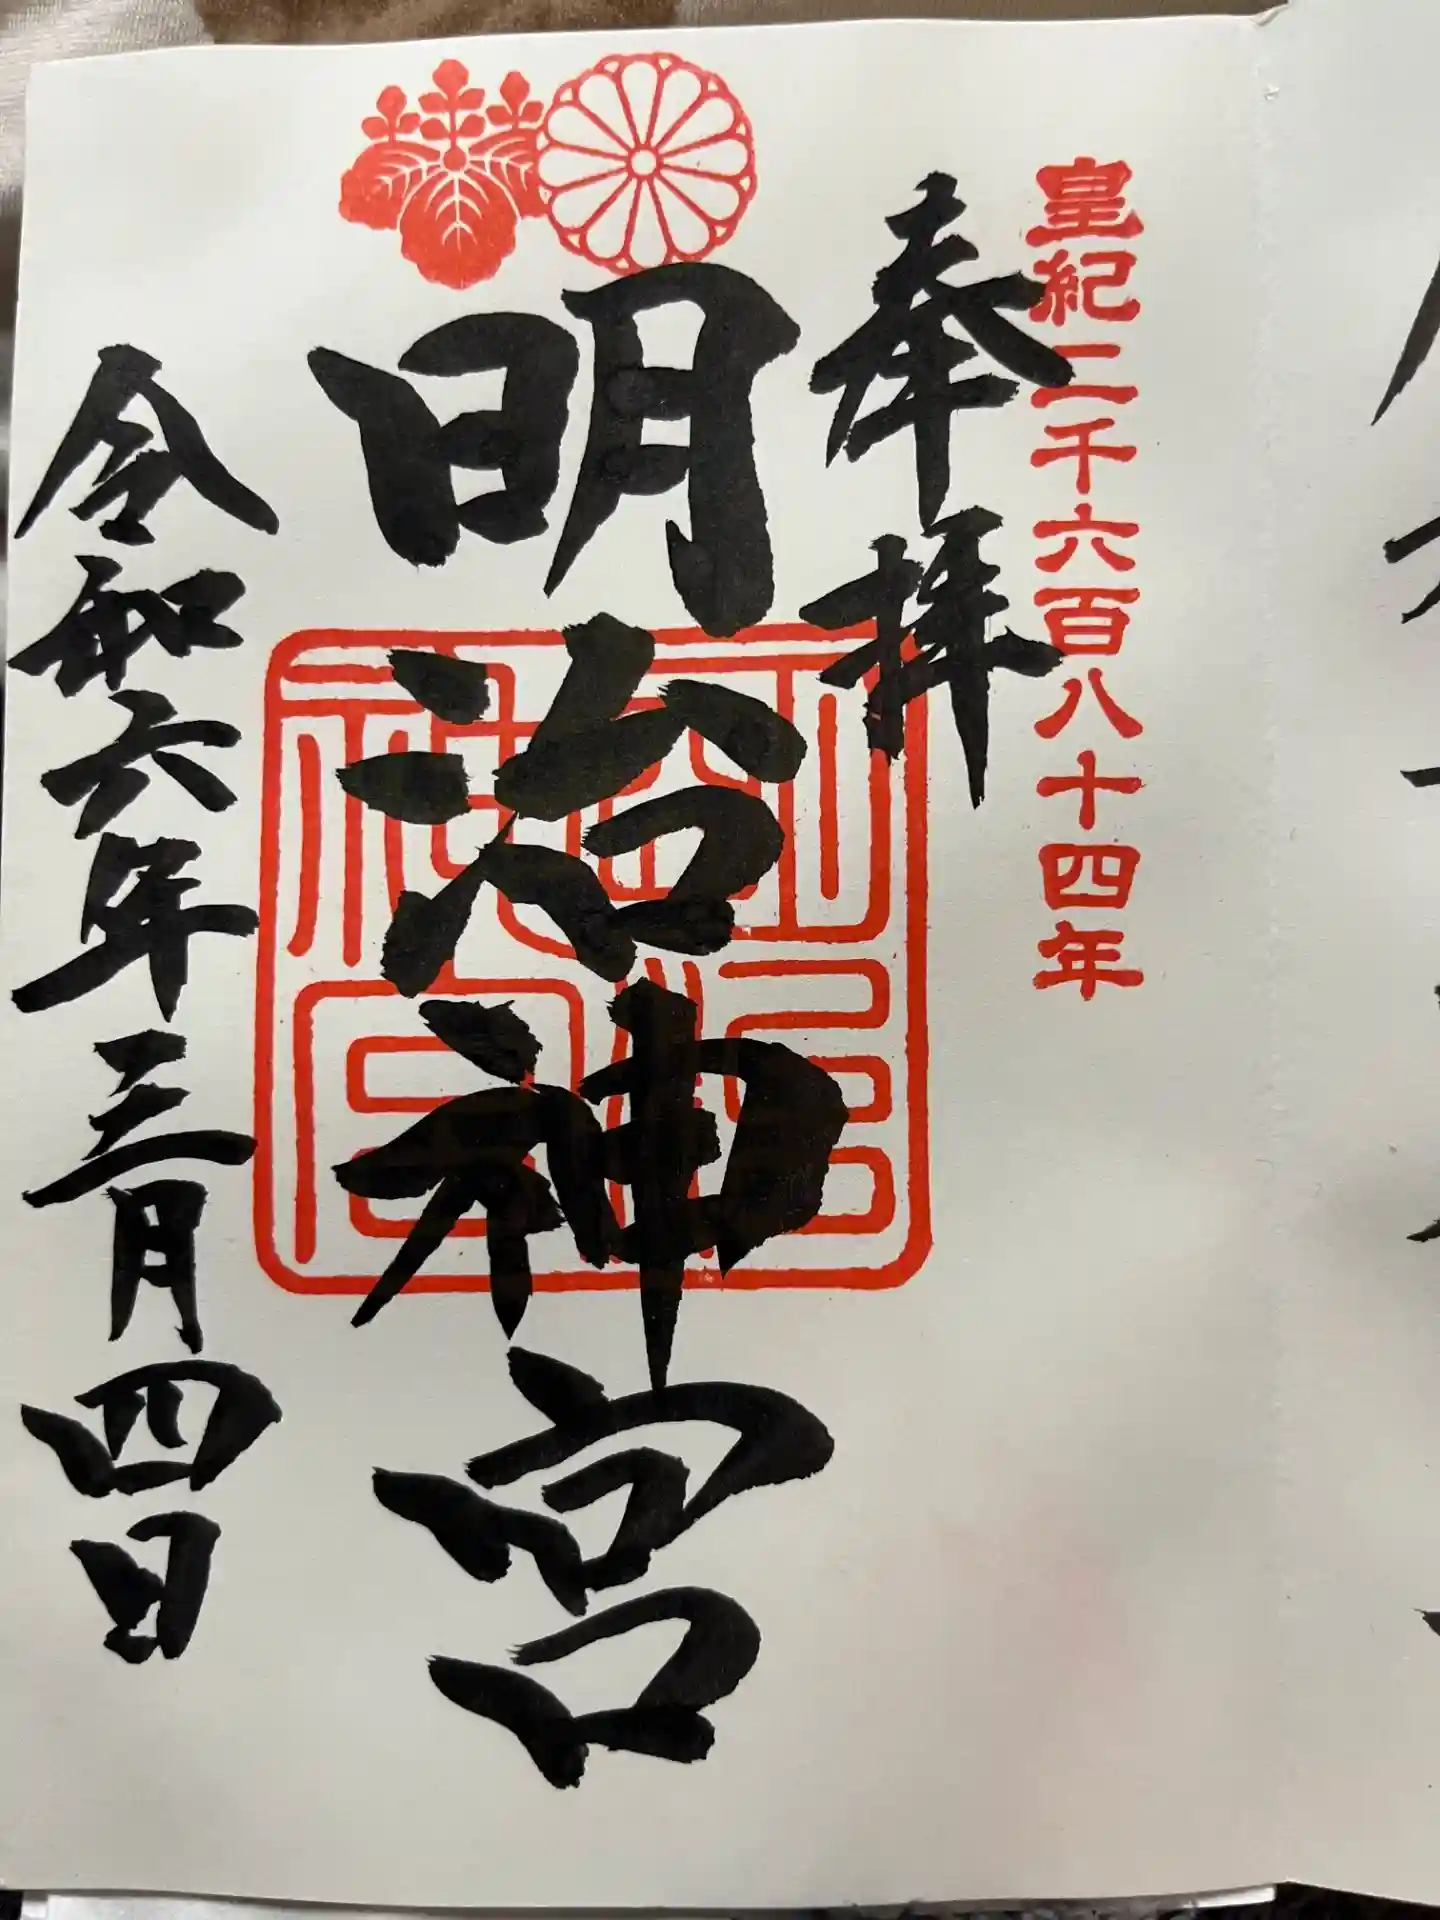 皇紀二千六百八十四年
奉拝
明治神宮
明治神宮
令和六年三月四日